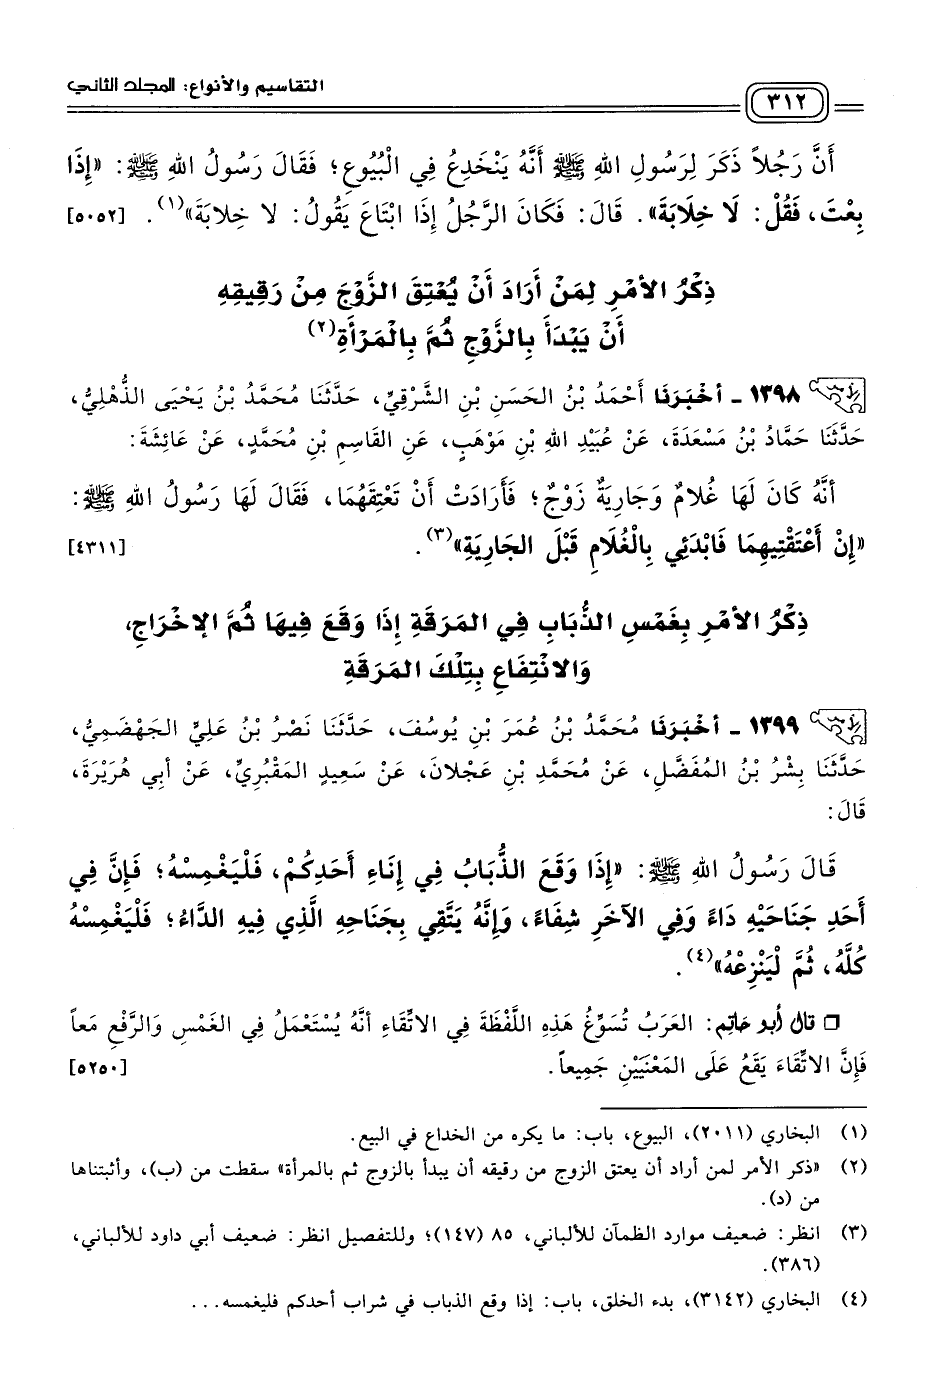 التقاسيم والأنواع: المجلد الثاني
٣١٢
أَنَّ رَجُلاً ذَكَرَ لِرَسُولِ اللهِ ﷺ أَنَّهُ يَنْخَدِعُ فِي الْبُيُوعِ؛ فَقَالَ رَسُولُ اللهِ ﷺ: «إِذَا
بِعْتَ، فَقُلْ: لَا خِلَابَةَ». قَالَ: فَكَانَ الرَّجُلُ إِذَا ابْتَاعَ يَقُولُ: لا خِلابَةَ»(١). [٥٠٥٢]
ذِكْرُ الأَمْرِ لِمَنْ أَرَادَ أَنْ يُعْتِقَ الزَّوْجَ مِنْ رَقِيقِهِ
أَنْ يَبْدَأَ بِالزَّوْجِ ثُمَّ بِالْمَرْأَةِ(٢)
١٣٩٨ - أَخْبَرَنَا أَحْمَدُ بْنُ الحَسَنِ بْنِ الشَّرْقِيِّ، حَدَّثَنَا مُحَمَّدُ بْنُ يَحْيَى الذُّهْلِيُّ،
حَدَّثَنَا حَمَّادُ بْنُ مَسْعَدَةَ، عَنْ عُبَيْدِ اللهِ بْنِ مَوْهَبٍ، عَنِ القَاسِمِ بْنِ مُحَمَّدٍ، عَنْ عَائِشَةَ:
أَنَّهُ كَانَ لَهَا غُلَامٌ وَجَارِيَةٌ زَوْجٌ؛ فَأَرَادَتْ أَنْ تَعْتِقَهُمَا، فَقَالَ لَهَا رَسُولُ اللهِ ﷺ:
«إِنْ أَعْتَقْتِيهِمَا فَابْدَئِي بِالْغُلَامِ قَبْلَ الجَارِيَةِ»(٣). [٤٣١١]
ذِكْرُ الأَمْرِ بِغَمْسِ الذُّبَابِ فِي المَرَقَةِ إِذَا وَقَعَ فِيهَا ثُمَّ الإخْرَاجِ،
وَالانْتِفَاعِ بِتِلْكَ المَرَقَةِ
١٣٩٩ - أَخْبَرَنَا مُحَمَّدُ بْنُ عُمَرَ بْنِ يُوسُفَ، حَدَّثَنَا نَصْرُ بْنُ عَلِيٍّ الجَهْضَمِيُّ،
حَدَّثَنَا بِشْرُ بْنُ المُفَضَّلِ، عَنْ مُحَمَّدِ بْنِ عَجْلانَ، عَنْ سَعِيدٍ المَقْبُرِيِّ، عَنْ أَبِي هُرَيْرَةَ،
قَالَ:
قَالَ رَسُولُ اللهِ ﷺ: «إِذَا وَقَعَ الذُّبَابُ فِي إِنَاءِ أَحَدِكُمْ، فَلْيَغْمِسْهُ؛ فَإِنَّ فِي
أَحَدِ جَنَاحَيْهِ دَاءً وَفِي الآخَرِ شِفَاءً، وَإِنَّهُ يَتَّقِي بِجَنَاحِهِ الَّذِي فِيهِ الدَّاءُ؛ فَلْيَغْمِسْهُ
كُلَّهُ، ثُمَّ لْيَنْزِعْهُ»(٤).
□ قال أبو حاتِم: العَرَبُ تُسَوِّغُ هَذِهِ اللَّفْظَةَ فِي الاتِّقَاءِ أَنَّهُ يُسْتَعْمَلُ فِي الغَمْسِ وَالرَّفْعِ مَعاً
فَإِنَّ الاتِّقَاءَ يَقَعُ عَلَى المَعْنَيَيْنِ جَمِيعاً. [٥٢٥٠]
(١) البخاري (٢٠١١)، البيوع، باب: ما يكره من الخداع في البيع.
(٢) «ذكر الأمر لمن أراد أن يعتق الزوج من رقيقه أن يبدأ بالزوج ثم بالمرأة» سقطت من (ب)، وأثبتناها
من (د).
(٣) انظر: ضعيف موارد الظمآن للألباني، ٨٥ (١٤٧)؛ وللتفصيل انظر: ضعيف أبي داود للألباني،
(٣٨٦).
(٤) البخاري (٣١٤٢)، بدء الخلق، باب: إذا وقع الذباب في شراب أحدكم فليغمسه...